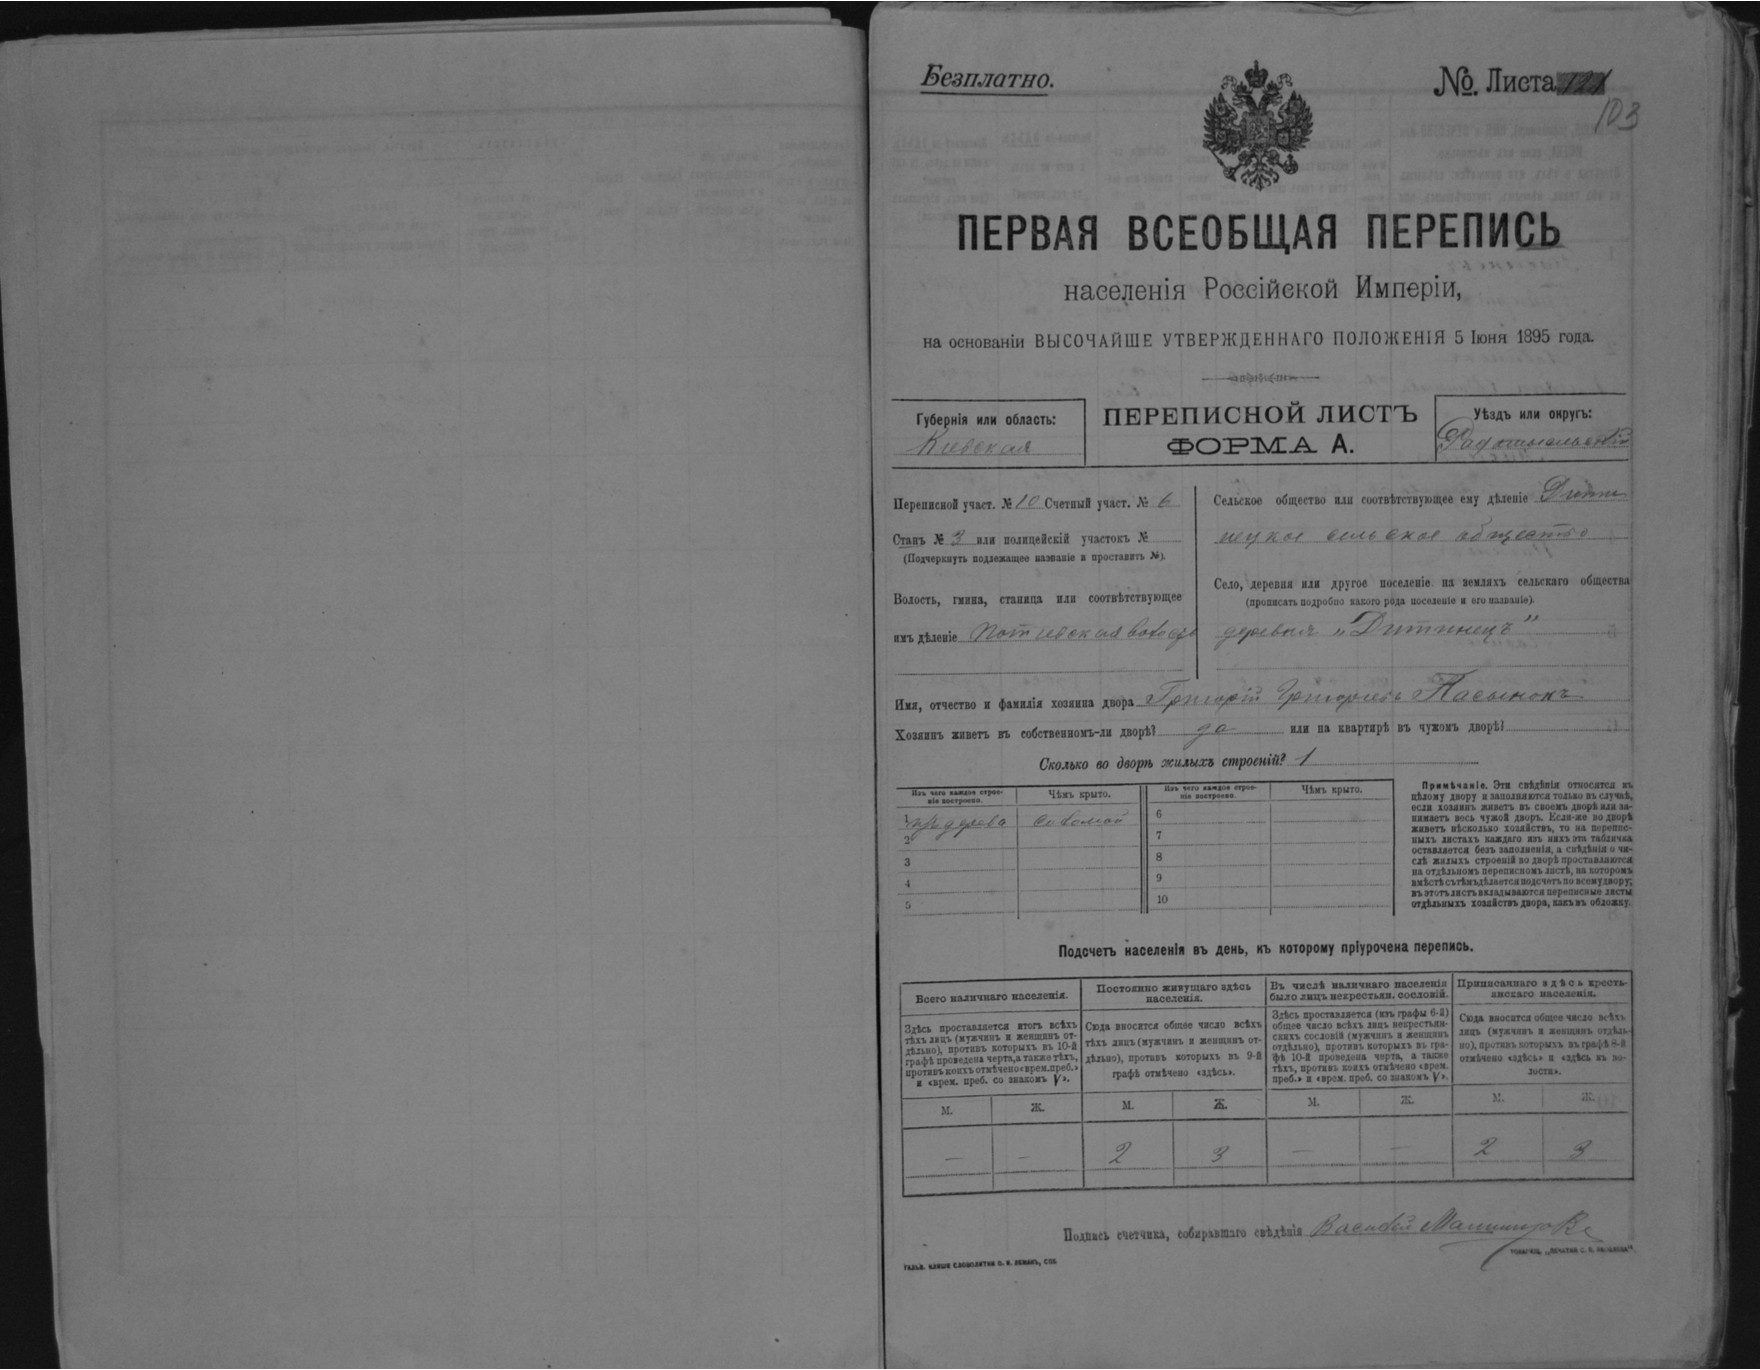 Безплатно.
№ Листа 121
103
ПЕРВАЯ ВСЕОБЩАЯ ПЕРЕПИСЬ
населенія Россійской Имперіи,
на основаніи ВЫСОЧАЙШЕ УТВЕРЖДЕННАГО ПОЛОЖЕНІЯ 5 Іюня 1895 года.
Губернія или область:
Киевская
ПЕРЕПИСНОЙ ЛИСТЪ
ФОРМА А.
Уѣздъ или округъ:
Радомысльскій
Переписной участ. № 10 Счетный участ. № 6
Станъ № 3 или полицейскій участокъ №
(Подчеркнуть подлежащее названіе и проставить №).
Волость, гмина, станица или соотвѣтствующее
имъ дѣленіе Потіевская волость
Сельское общество или соотвѣтствующее ему дѣленіе Дити
нецкое сельское общество
Село, деревня или другое поселеніе на земляхъ сельскаго общества
(прописать подробно какого рода поселеніе и его названіе).
деревня „Дитинецъ"
Имя, отчество и фамилія хозяина двора Григорій Григорьевъ Пасынокъ
Хозяинъ живетъ въ собственномъ-ли дворѣ? да или на квартирѣ въ чужомъ дворѣ?
Сколько во дворѣ жилыхъ строеній? 1
Изъ чего каждое строе-
ніе построено.
Чѣмъ крыто.
Изъ чего каждое строе-
ніе построено.
Чѣмъ крыто.
1 изъ дерева соломой 6
2 7
3 8
4 9
5 10
Примѣчаніе. Эти свѣдѣнія относятся къ
цѣлому двору и заполняются только въ случаѣ,
если хозяинъ живетъ въ своемъ дворѣ или за-
нимаетъ весь чужой дворъ. Если-же во дворѣ
живетъ нѣсколько хозяйствъ, то на перепис-
ныхъ листахъ каждаго изъ нихъ эта табличка
оставляется безъ заполненія, а свѣдѣнія о чи-
слѣ жилыхъ строеній во дворѣ проставляются
на отдѣльномъ переписномъ листѣ, на которомъ
вмѣстѣ съ тѣмъ дѣлается подсчетъ по всему двору;
въ этотъ листъ вкладываются переписные листы
отдѣльныхъ хозяйствъ двора, какъ въ обложку.
Подсчетъ населенія въ день, къ которому пріурочена перепись.
Всего наличнаго населенія.
Постоянно живущаго здѣсь
населенія.
Въ числѣ наличнаго населенія
было лицъ некрестьян. сословій.
Приписаннаго здѣсь кресть-
янскаго населенія.
Здѣсь проставляется итогъ всѣхъ
тѣхъ лицъ (мужчинъ и женщинъ от-
дѣльно), противъ которыхъ въ 10-й
графѣ проведена черта, а также тѣхъ,
противъ коихъ отмѣчено «врем. преб.»
и «врем. преб. со знакомъ V».
Сюда вносится общее число всѣхъ
тѣхъ лицъ (мужчинъ и женщинъ от-
дѣльно), противъ которыхъ въ 9-й
графѣ отмѣчено «здѣсь».
Здѣсь проставляется (изъ графы 6-й)
общее число всѣхъ лицъ некрестьян-
скихъ сословій (мужчинъ и женщинъ
отдѣльно), противъ которыхъ въ гра-
фѣ 10-й проведена черта, а также
тѣхъ, противъ коихъ отмѣчено «врем.
преб.» и «врем. преб. со знакомъ V».
Сюда вносится общее число всѣхъ
лицъ (мужчинъ и женщинъ отдѣль-
но), противъ которыхъ въ графѣ 8-й
отмѣчено «здѣсь» и «здѣсь въ во-
лости».
М. Ж. М. Ж. М. Ж. М. Ж.
— — 2 3 — — 2 3
Подпись счетчика, собиравшаго свѣдѣнія Василій
ГАЛЬВ. КЛИШЕ СЛОВОЛИТНИ О. И. ЛЕМАНЪ, СПБ.
ТОВАРИЩ. „ПЕЧАТНЯ С. П. ЯКОВЛЕВА".